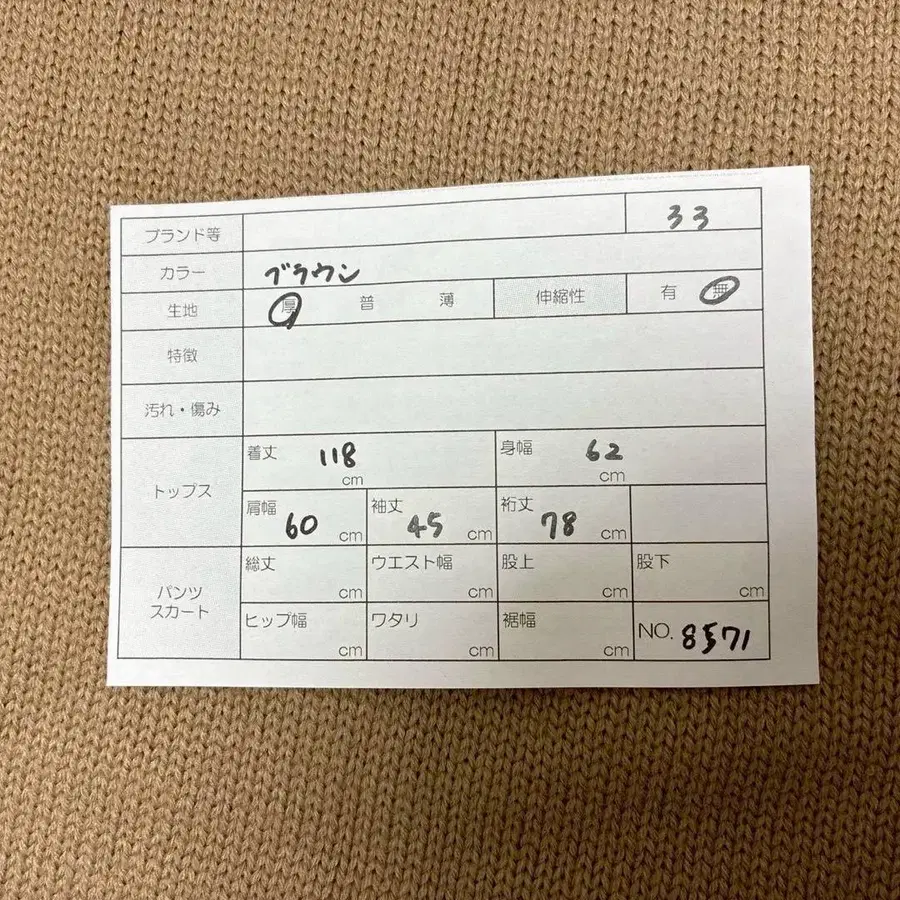 ブランド等 33
カラー ブラウン
生地 厚 普 薄 伸縮性 有 無
特徴
汚れ・傷み
トップス
着丈 118 cm 身幅 62 cm
肩幅 60 cm 袖丈 45 cm 裄丈 78 cm
パンツ
スカート
総丈 cm ウエスト幅 cm 股上 cm 股下 cm
ヒップ幅 cm ワタリ cm 裾幅 cm NO. 8571